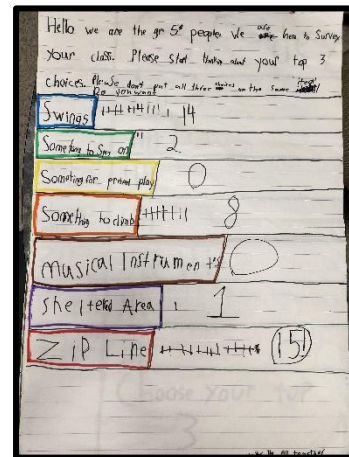 Hello we are the gr 5 people We are here to Survey
your class. Please start thinking about your top 3
choices. Please don't put all three choices on the same
Do you want
Swings 14
Someting to Spin on 2
Someting for prened play 0
Something to climb 8
Musical Instruments 0
Sheltered Area 1
Zip Line 15
Choose Your top
3